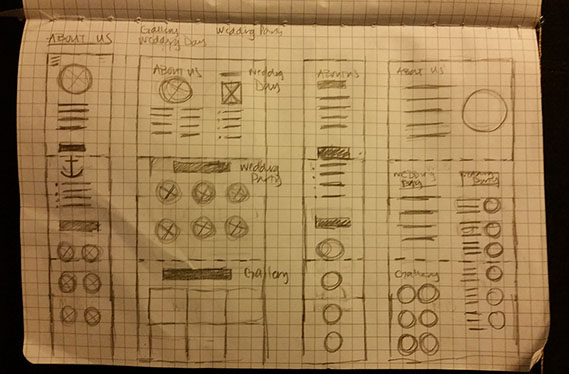 ABOUT US
Gallery
Wedding Day
Wedding Party
ABOUT US
Wedding
Day
Wedding
Party
Gallery
ABOUT US
ABOUT US
Wedding
Day
Gallery